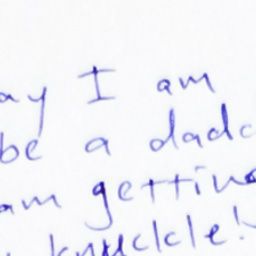 ay I am
be a dadd
am getting
knuckle!